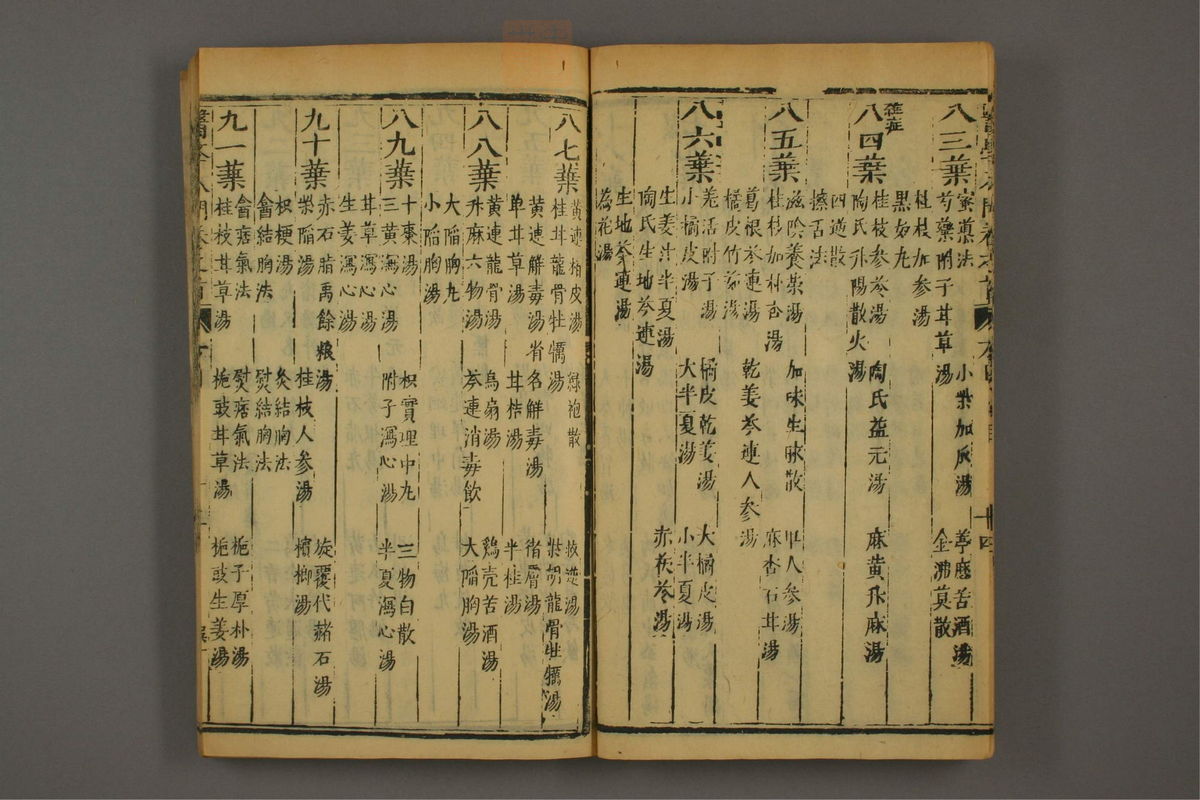 八三葉
蜜薰法
芍藥附子甘草湯
小柴加灰湯
葶藶苦酒湯
金沸莫散
桂枝加參湯
黑奴丸
雜症
八四葉
桂枝參苓湯
陶氏升陽散火湯
陶氏益元湯
麻黄升麻湯
四逆散
擦舌法
八五葉
滋陰養榮湯
桂枝加朴杏湯
加味生脉散
甲人參湯
麻杏石甘湯
葛根芩連湯
橘皮竹茹湯
乾姜芩連人參湯
八六葉
羌活附子湯
小橘皮湯
橘皮乾姜湯
大半夏湯
大橘皮湯
小半夏湯
生姜汁半夏湯
陶氏生地芩連湯
赤茯苓湯
生地芩連湯
八七葉
黄連栢皮湯
桂甘龍骨牡蠣湯
緑袍散
救逆湯
柴胡龍骨牡蠣湯
黄連觧毒湯
單甘草湯
省名觧毒湯
甘桔湯
猪膚湯
半桂湯
八八葉
黄連龍骨湯
升麻六物湯
烏扇湯
芩連消毒飲
鷄壳苦酒湯
大陷胸湯
大陷胸丸
小陷胸湯
八九葉
十棗湯
三黄瀉心湯
枳實理中丸
附子瀉心湯
三物白散
半夏瀉心湯
甘草瀉心湯
生姜瀉心湯
九十葉
赤石脂禹餘粮湯
柴陷湯
桂枝人參湯
旋覆代赭石湯
檳榔湯
枳梗湯
畲結胸法
灸結胸法
熨結胸法
九一葉
畲痞氣法
桂枝甘草湯
熨痞氣法
梔豉甘草湯
梔子厚朴湯
梔豉生姜湯